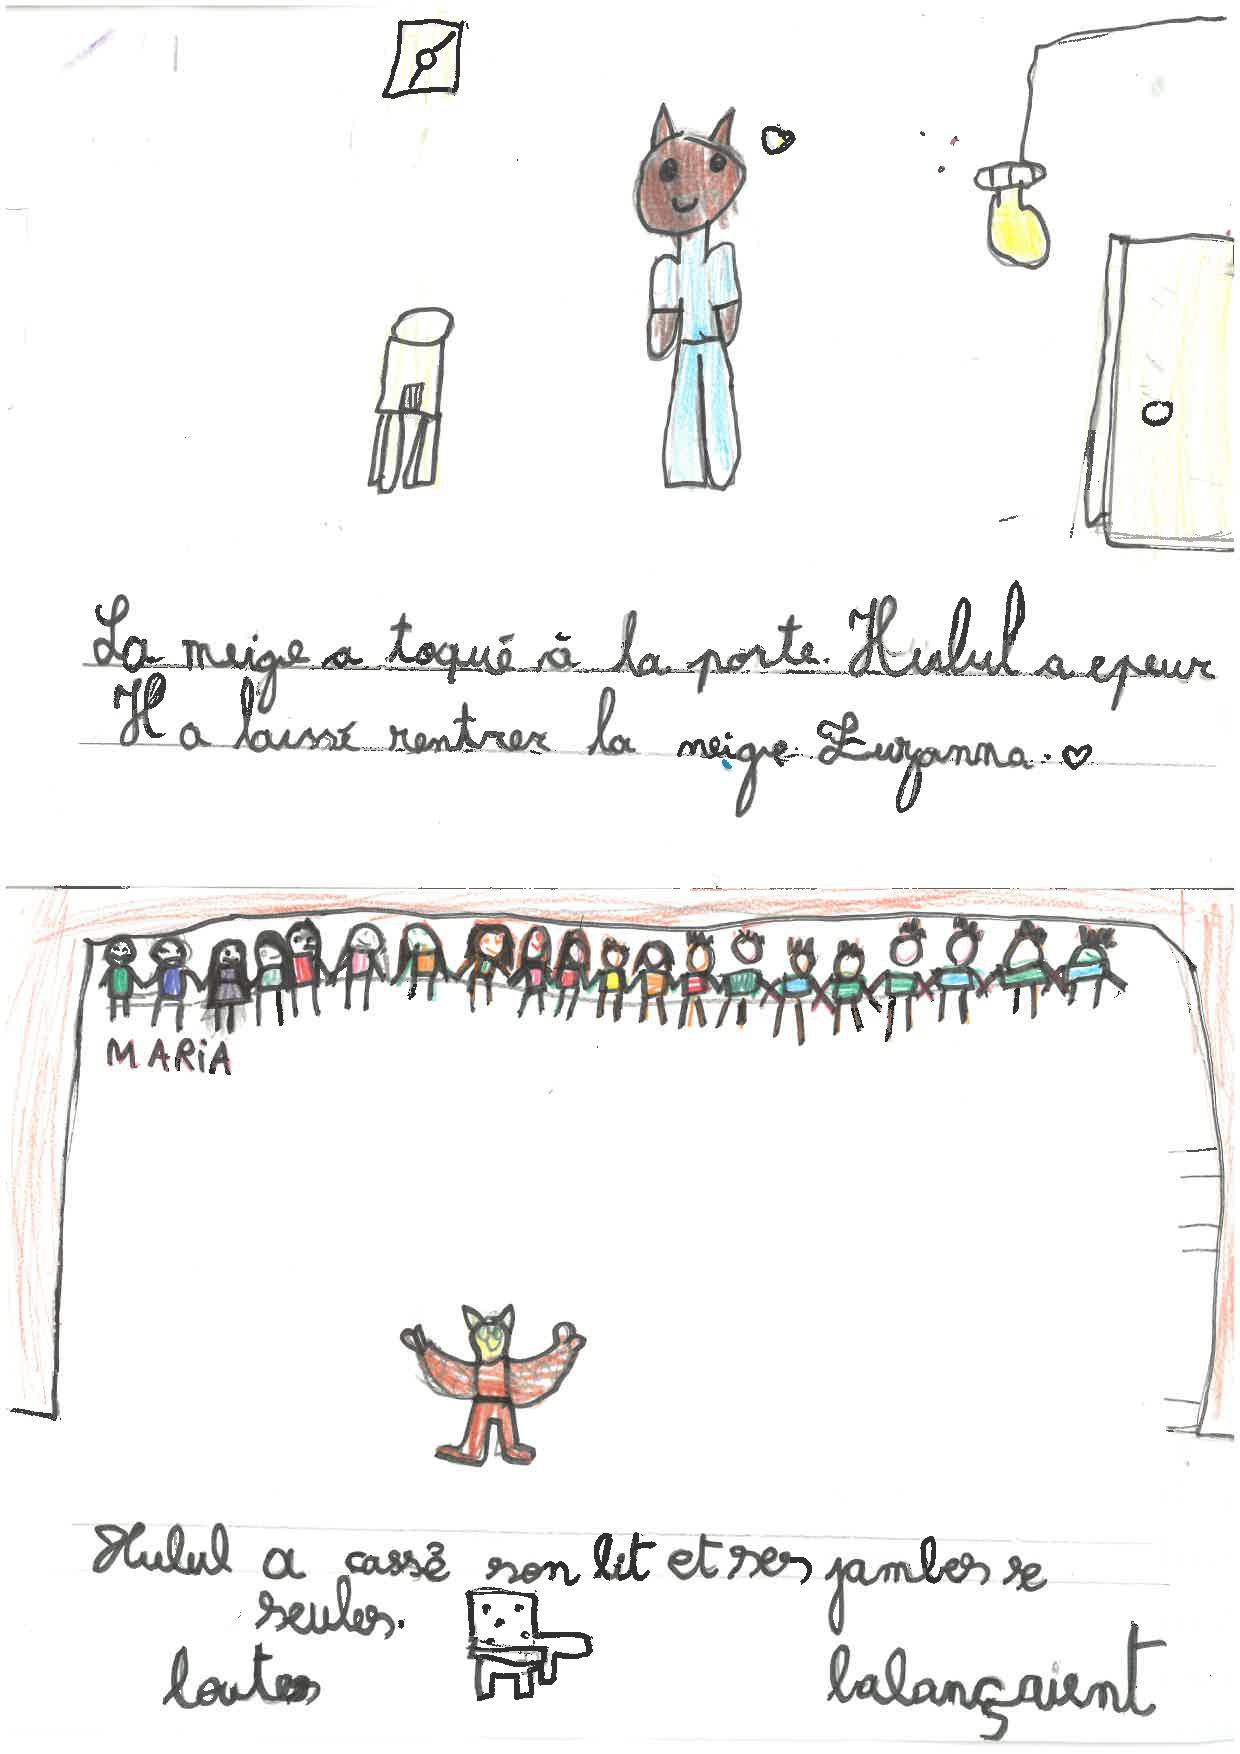 La neige a toqué à la porte. Hulul a epeur
Il a laissé rentrer la neige. Luzanna. ♡
MARiA
Hulul a cassé son lit et ses jambes se
seules.
toutes balançaient